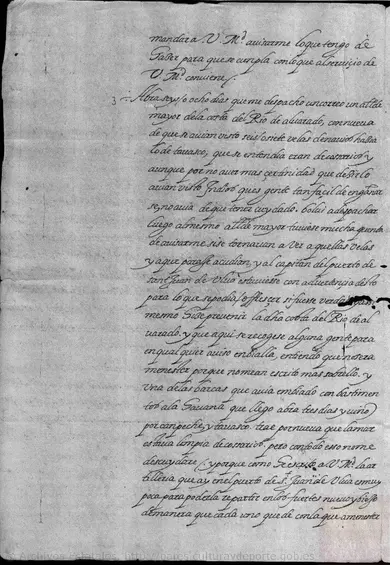 mandara V. Md. auisarme lo que tengo de
haser para que se cumpla con lo que al seruicio de
V. Md. conuiene
Abra seys o ocho dias que me despacho un correo un allde
mayor de la costa del Rio de aluarado, con nueua
de que se auian visto seis o siete velas de nauios hazia
lo de tauasco, que se entendia eran de cosarios y
aunque por no auer mas certinidad que desirlo
auian visto Indios ques gente tan facil de engañar
se, no auia de que tener cuydado. bolui a despachar
luego al mesmo allde mayor tuuiese mucha quenta
de auisarme si se tornauan a ver aquellas velas
y a que parte acudian, y al capitan del puerto de
sant Juan de Ulua estuuiese con aduertencia desto
para lo que se podia ofreser si fuese verdad
mesmo hise preuenir la dha costa del Rio de al
uarado, y que aqui se recogese alguna gente para
en qual quier auiso embialla, entiendo que no sera
menester porque no me an escrito mas sobrello. y
Una de las barcas que auia embiado con bastimen
tos a la Hauana que llego abra tres dias y uino
por campeche, y tauasco. trae por nueua que la mar
estaua limpia de cosarios, pero con todo eso no me
descuydare, y porque como he escrito a V. Md. la ar
tilleria que ay en el puerto de st. Juan de Ulua es muy
poca para poderla repartir en los fuertes nueuo y biejo
de manera que cada uno quede con la que a menester
Archivos Estatales, http://pares.culturaydeporte.gob.es